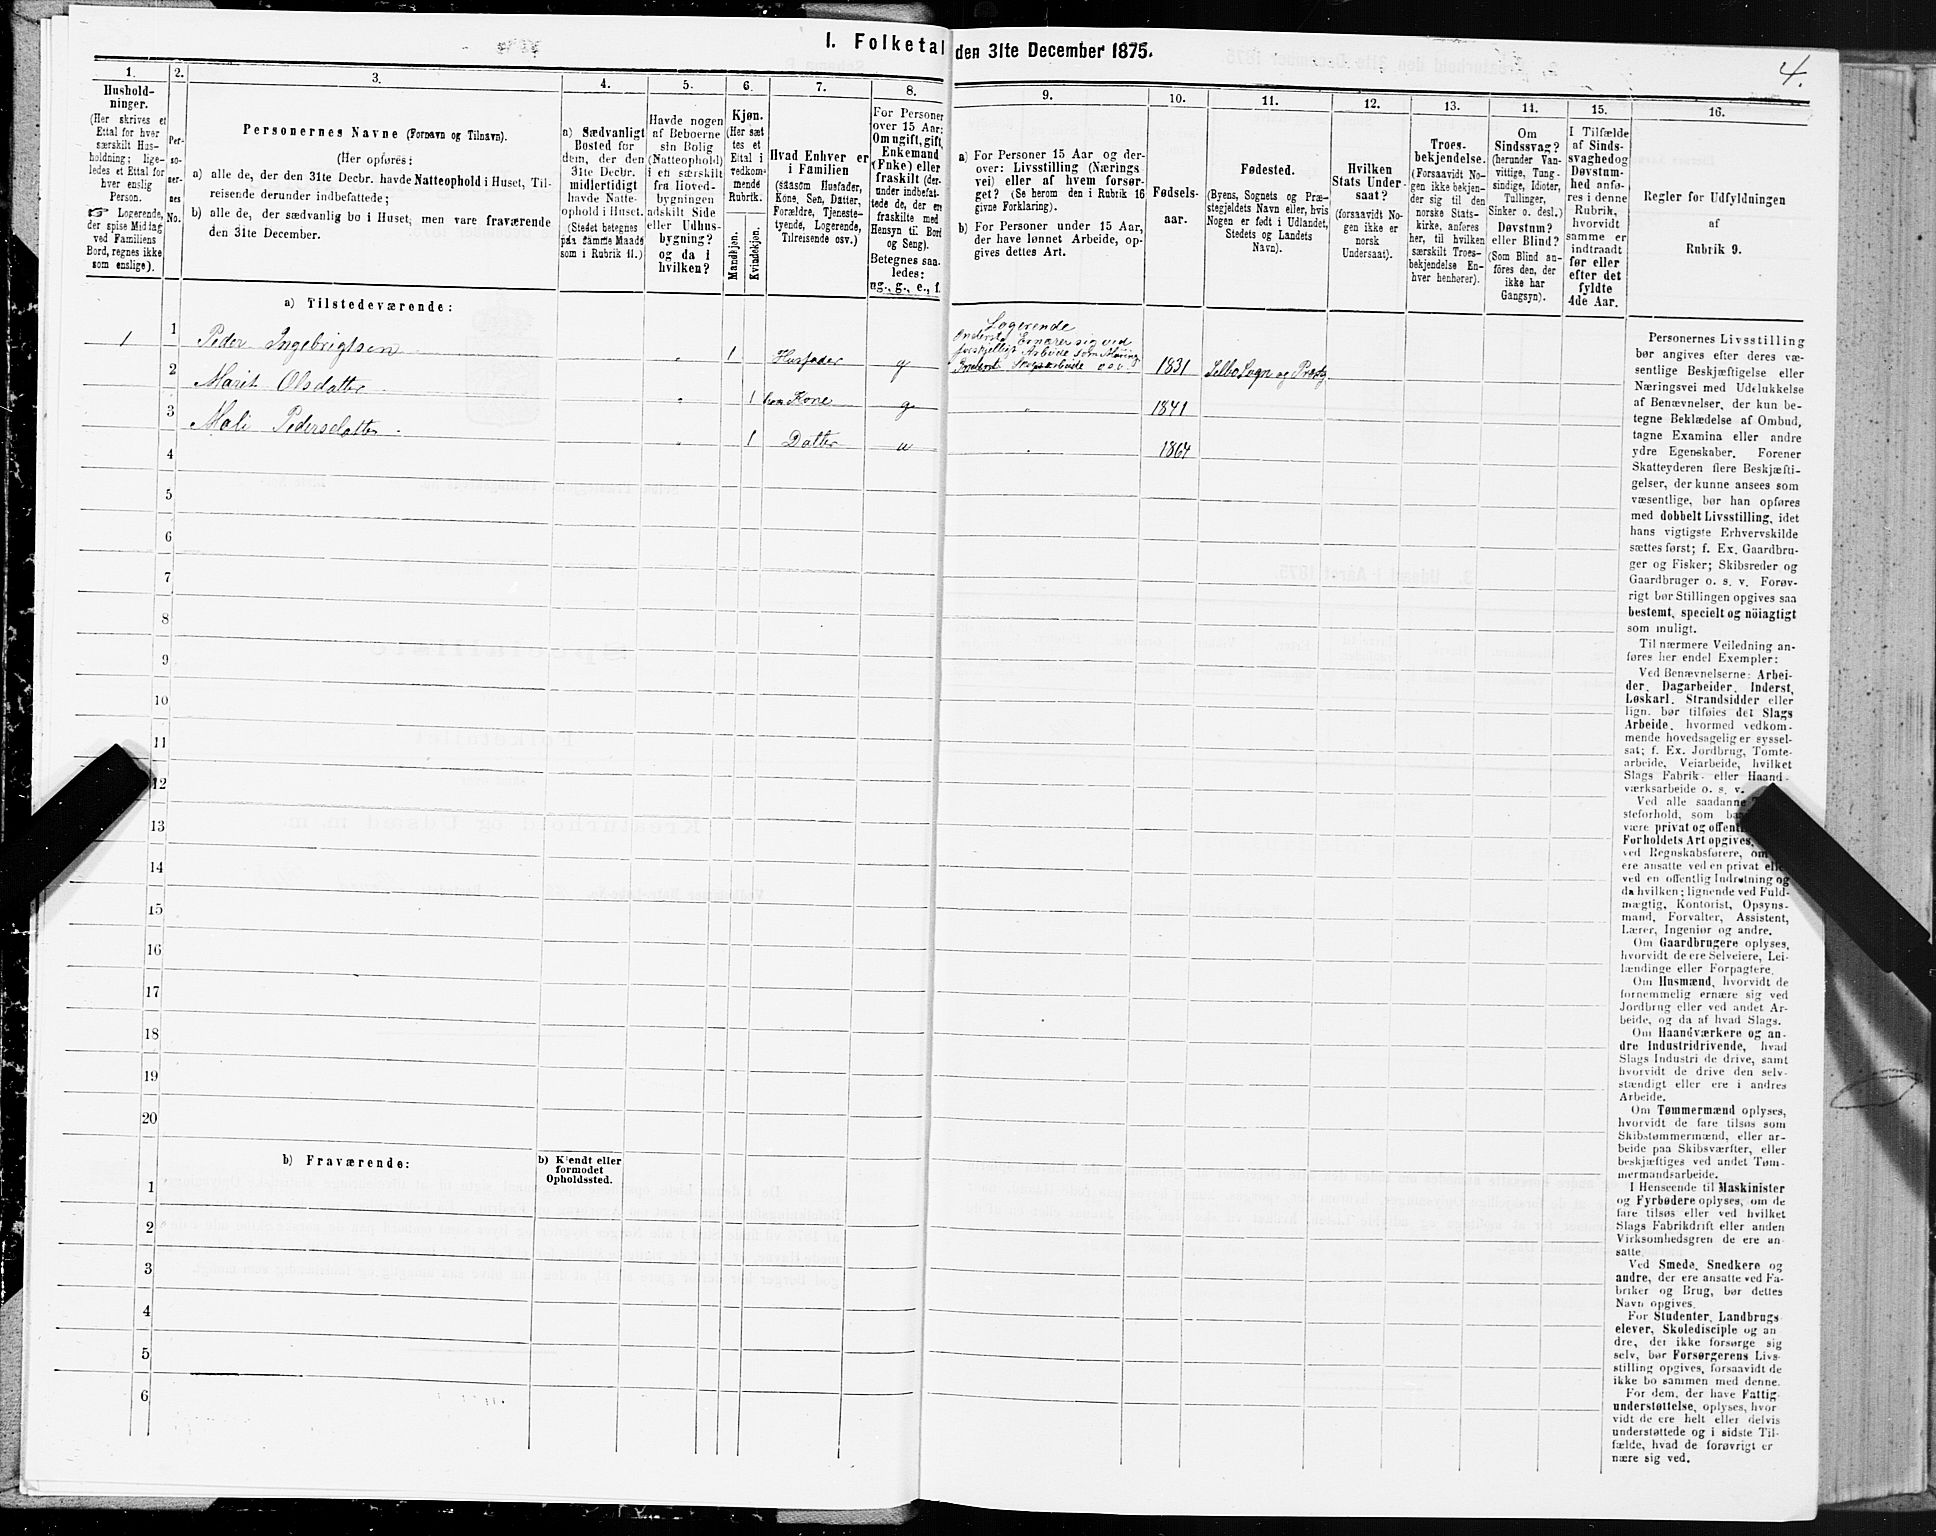 I. Folketal den 31te December 1875.
4.
1.
Hushold-
ninger.
(Her skrives et
Ettal for hver
særskilt Hus-
holdning; lige-
ledes et Ettal for
hver enslig
Person.
☞ Logerende,
der spise Middag
ved Familiens
Bord, regnes ikke
som enslige).
2.
Per-
so-
ner-
nes
No.
3.
Personernes Navne (Fornavn og Tilnavn).
(Her opføres:
a) alle de, der den 31te Decbr. havde Natteophold i Huset, Til-
reisende derunder indbefattede;
b) alle de, der sædvanlig bo i Huset, men vare fraværende
den 31te December.
4.
a) Sædvanligt
Bosted for
dem, der den
31te Decbr.
midlertidigt
havde Natte-
ophold i Huset.
(Stedet betegnes
paa samme Maade
som i Rubrik 11.)
5.
Havde nogen
af Beboerne
sin Bolig
(Natteophold)
i en særskilt
fra Hoved-
bygningen
adskilt Side
eller Udhus-
bygning?
og da i
hvilken?
6.
Kjøn.
(Her sæt-
tes et
Ettal i
vedkom-
mende
Rubrik.
Mandkjøn.
Kvindekjøn.
7.
Hvad Enhver er
i Familien
(saasom Husfader,
Kone, Søn, Datter,
Forældre, Tjeneste-
tyende, Logerende,
Tilreisende osv.)
8.
For Personer
over 15 Aar:
Om ugift, gift,
Enkemand
(Enke) eller
fraskilt (der-
under indbefat-
tede de, der ere
fraskilte med
Hensyn til Bord
og Seng).
Betegnes saa-
ledes:
ug., g., e., f.
9.
a) For Personer 15 Aar og der-
over: Livsstilling (Nærings-
vei) eller af hvem forsør-
get? (Se herom den i Rubrik 16
givne Forklaring).
b) For Personer under 15 Aar,
der have lønnet Arbeide, op-
gives dettes Art.
10.
Fødsels-
aar.
11.
Fødested.
(Byens, Sognets og Præ-
stegjeldets Navn eller, hvis
Nogen er født i Udlandet,
Stedets og Landets
Navn).
12.
Hvilken
Stats Under-
saat?
(forsaavidt No-
gen ikke er
norsk
Undersaat).
13.
Troes-
bekjendelse.
(Forsaavidt No-
gen ikke bekjen-
der sig til den
norske Stats-
kirke, anføres
her, til hvilken
særskilt Troes-
bekjendelse En-
hver henhører).
14.
Om
Sindssvag?
(herunder Van-
vittige, Tung-
sindige, Idioter,
Tullinger,
Sinker o. desl.)
Døvstum?
eller Blind?
(Som Blind an-
føres den, der
ikke har
Gangsyn).
15.
I Tilfælde
af Sinds-
svaghed og
Døvstum-
hed anfø-
res i denne
Rubrik,
hvorvidt
samme er
indtraadt
før eller
efter det
fyldte
4de Aar.
16.
Regler for Udfyldningen
af
Rubrik 9.
a) Tilstedeværende:
Logerende
Inderst Ernærer sig ved
forskjelligt Arbeide som
1 1 Peder Ingebrigtsen 1 Husfader g 1831 Selbo Sogn og Præstg
2 Marit Olsdatter 1 Kone g 1841
3 Mali Pedersdatter 1 Datter u 1864
4
5
6
7
8
9
10
11
12
13
14
15
16
17
18
19
20
b) Fraværende:
b) Kjendt eller
formodet
Opholdssted.
1
2
3
4
5
6
Personernes Livsstilling
bør angives efter deres væ-
sentlige Beskjæftigelse eller
Næringsvei med Udelukkelse
af Benævnelser, der kun be-
tegne Beklædelse af Ombud,
tagne Examina eller andre
ydre Egenskaber. Forener
Skatteyderen flere Beskjæfti-
gelser, der kunne ansees som
væsentlige, bør han opføres
med dobbelt Livsstilling, idet
hans vigtigste Erhvervskilde
sættes først; f. Ex. Gaardbru-
ger og Fisker; Skibsreder og
Gaardbruger o. s. v. Forøv-
rigt bør Stillingen opgives saa
bestemt, specielt og nöiagtigt
som muligt.
Til nærmere Veiledning an-
føres her endel Exempler:
Ved Benævnelserne: Arbei-
der, Dagarbeider, Inderst,
Løskarl, Strandsidder eller
lign. bør tilføies det Slags
Arbeide, hvormed vedkom-
mende hovedsagelig er syssel-
sat; f. Ex. Jordbrug, Tomte-
arbeide, Veiarbeide, hvilket
Slags Fabrik- eller Haand-
værksarbeide o. s. v.
Ved alle saadanne
steforhold, som
være privat og offent
Forholdets Art opgives,
ved Regnskabsførere, om
ere ansatte ved en privat eller
ved en offentlig Indretning og
da hvilken; lignende ved Fuld-
mægtig, Kontorist, Opsyns-
mand, Forvalter, Assistent,
Lærer, Ingeniør og andre.
Om Gaardbrugere oplyses,
hvorvidt de ere Selveiere, Lei-
lændinge eller Forpagtere.
Om Husmænd, hvorvidt de
fornemmelig ernære sig ved
Jordbrug eller ved andet Ar-
beide, og da af hvad Slags.
Om Haandværkere og an-
dre Industridrivende, hvad
Slags Industri de drive, samt
hvorvidt de drive den selv-
stændigt eller ere i andres
Arbeide.
Om Tømmermænd oplyses,
hvorvidt de fare tilsøs som
Skibstømmermænd, eller ar-
beide paa Skibsværfter, eller
beskjæftiges ved andet Tøm-
mermandsarbeide.
I Henseende til Maskinister
og Fyrbødere oplyses, om de
fare tilsøs eller ved hvilket
Slags Fabrikdrift eller anden
Virksomhedsgren de ere an-
satte.
Ved Smede, Snedkere og
andre, der ere ansatte ved Fa-
briker og Brug, bør dettes
Navn opgives.
For Studenter, Landbrugs-
elever, Skoledisciple og an-
dre, der ikke forsørge sig
selv, bør Forsørgerens Livs-
stilling opgives, forsaavidt de
ikke bo sammen med denne.
For dem, der have Fattig-
understøttelse, oplyses, hvor-
vidt de ere helt eller delvis
understøttede og i sidste Til-
fælde, hvad de forøvrigt er-
nære sig ved.